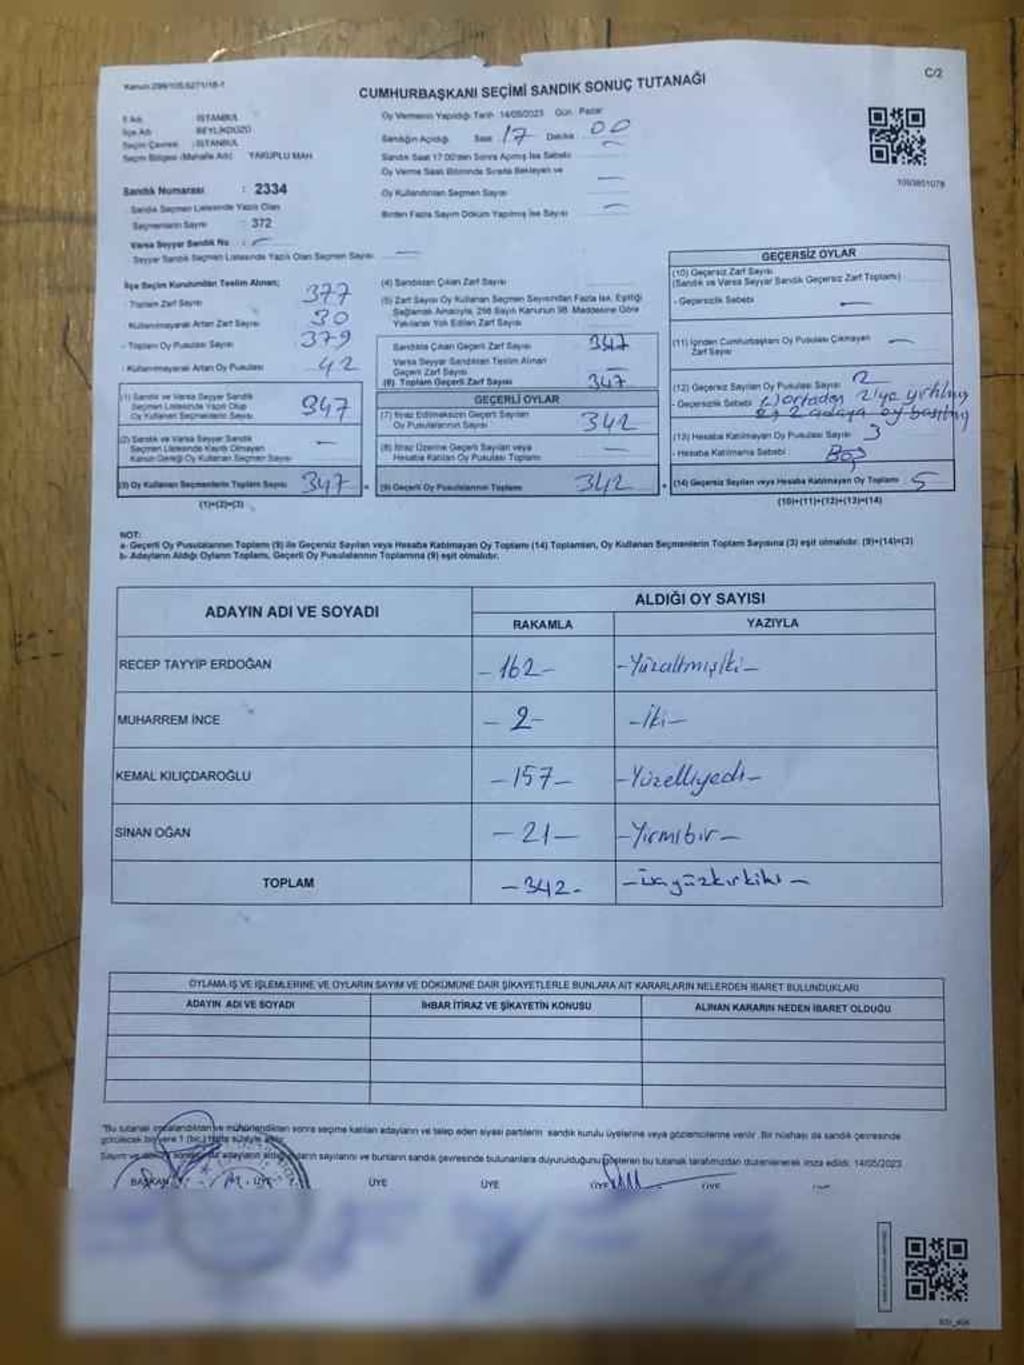 C/2
Kanun:298/105,6271/18-1
CUMHURBAŞKANI SEÇİMİ SANDIK SONUÇ TUTANAĞI
İl Adı : İSTANBUL
İlçe Adı : BEYLİKDÜZÜ
Seçim Çevresi : İSTANBUL
Seçim Bölgesi (Mahalle Adı) : YAKUPLU MAH.
Sandık Numarası : 2334
Sandık Seçmen Listesinde Yazılı Olan
Seçmenlerin Sayısı : 372
Varsa Seyyar Sandık No : —
Seyyar Sandık Seçmen Listesinde Yazılı Olan Seçmen Sayısı —
Oy Vermenin Yapıldığı Tarih 14/05/2023 Gün Pazar
Sandığın Açıldığı Saat 17 Dakika 00
Sandık Saat 17.00'den Sonra Açılmış İse Sebebi
Oy Verme Saati Bitiminde Sırada Bekleyen ve —
Oy Kullandırılan Seçmen Sayısı
Birden Fazla Sayım Döküm Yapılmış İse Sayısı —
1003851078
İlçe Seçim Kurulundan Teslim Alınan;
Toplam Zarf Sayısı 377
Kullanılmayarak Artan Zarf Sayısı 30
- Toplam Oy Pusulası Sayısı 379
- Kullanılmayarak Artan Oy Pusulası 42
(1) Sandık ve Varsa Seyyar Sandık
Seçmen Listesinde Yazılı Olup
Oy Kullanan Seçmenlerin Sayısı 347
(2) Sandık ve Varsa Seyyar Sandık
Seçmen Listesinde Kayıtlı Olmayan
Kanun Gereği Oy Kullanan Seçmen Sayısı —
(3) Oy Kullanan Seçmenlerin Toplam Sayısı 347
(1)+(2)=(3)
(4) Sandıktan Çıkan Zarf Sayısı
(5) Zarf Sayısı Oy Kullanan Seçmen Sayısından Fazla İse, Eşitliği
Sağlamak Amacıyla, 298 Sayılı Kanunun 98. Maddesine Göre
Yakılarak Yok Edilen Zarf Sayısı
Sandıkta Çıkan Geçerli Zarf Sayısı 347
Varsa Seyyar Sandıktan Teslim Alınan
Geçerli Zarf Sayısı —
(6) Toplam Geçerli Zarf Sayısı 347
GEÇERLİ OYLAR
(7) İtiraz Edilmeksizin Geçerli Sayılan
Oy Pusulalarının Sayısı 342
(8) İtiraz Üzerine Geçerli Sayılan veya
Hesaba Katılan Oy Pusulası Toplamı —
(9) Geçerli Oy Pusulalarının Toplamı 342
GEÇERSİZ OYLAR
(10) Geçersiz Zarf Sayısı
(Sandık ve Varsa Seyyar Sandık Geçersiz Zarf Toplamı)
- Geçersizlik Sebebi —
(11) İçinden Cumhurbaşkanı Oy Pusulası Çıkmayan
Zarf Sayısı —
(12) Geçersiz Sayılan Oy Pusulası Sayısı 2
- Geçersizlik Sebebi ortadan 2'ye yırtılmış
2 adaya oy basılmış
(13) Hesaba Katılmayan Oy Pusulası Sayısı 3
- Hesaba Katılmama Sebebi Boş
(14) Geçersiz Sayılan veya Hesaba Katılmayan Oy Toplamı 5
(10)+(11)+(12)+(13)=(14)
NOT:
a- Geçerli Oy Pusulalarının Toplamı (9) ile Geçersiz Sayılan veya Hesaba Katılmayan Oy Toplamı (14) Toplamları, Oy Kullanan Seçmenlerin Toplam Sayısına (3) eşit olmalıdır. (9)+(14)=(3)
b- Adayların Aldığı Oyların Toplamı, Geçerli Oy Pusulalarının Toplamına (9) eşit olmalıdır.
ADAYIN ADI VE SOYADI
ALDIĞI OY SAYISI
RAKAMLA YAZIYLA
RECEP TAYYİP ERDOĞAN -162- -Yüzaltmışiki-
MUHARREM İNCE -2- -İki-
KEMAL KILIÇDAROĞLU -157- -Yüzelliyedi-
SİNAN OĞAN -21- -Yirmibir-
TOPLAM -342- -üçyüzkırkiki-
OYLAMA İŞ VE İŞLEMLERİNE VE OYLARIN SAYIM VE DÖKÜMÜNE DAİR ŞİKAYETLERLE BUNLARA AİT KARARLARIN NELERDEN İBARET BULUNDUKLARI
ADAYIN ADI VE SOYADI İHBAR İTİRAZ VE ŞİKAYETİN KONUSU ALINAN KARARIN NEDEN İBARET OLDUĞU
"Bu tutanak imzalandıktan ve mühürlendikten sonra seçime katılan adayların ve talep eden siyasi partilerin sandık kurulu üyelerine veya gözlemcilerine verilir. Bir nüshası da sandık çevresinde
görülecek bir yere 1 (bir) hafta süreyle asılır.
adayların aldığı oyların sayılarını ve bunların sandık çevresinde bulunanlara duyurulduğunu gösteren bu tutanak tarafımızdan düzenlenerek imza edildi. 14/05/2023
BAŞKAN ÜYE ÜYE ÜYE ÜYE ÜYE